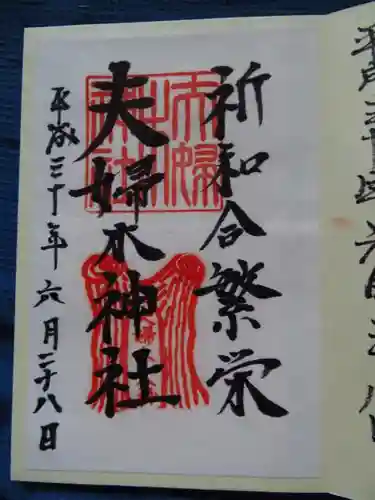 祈和合繁栄
夫婦木神社
平成三十年六月二十八日